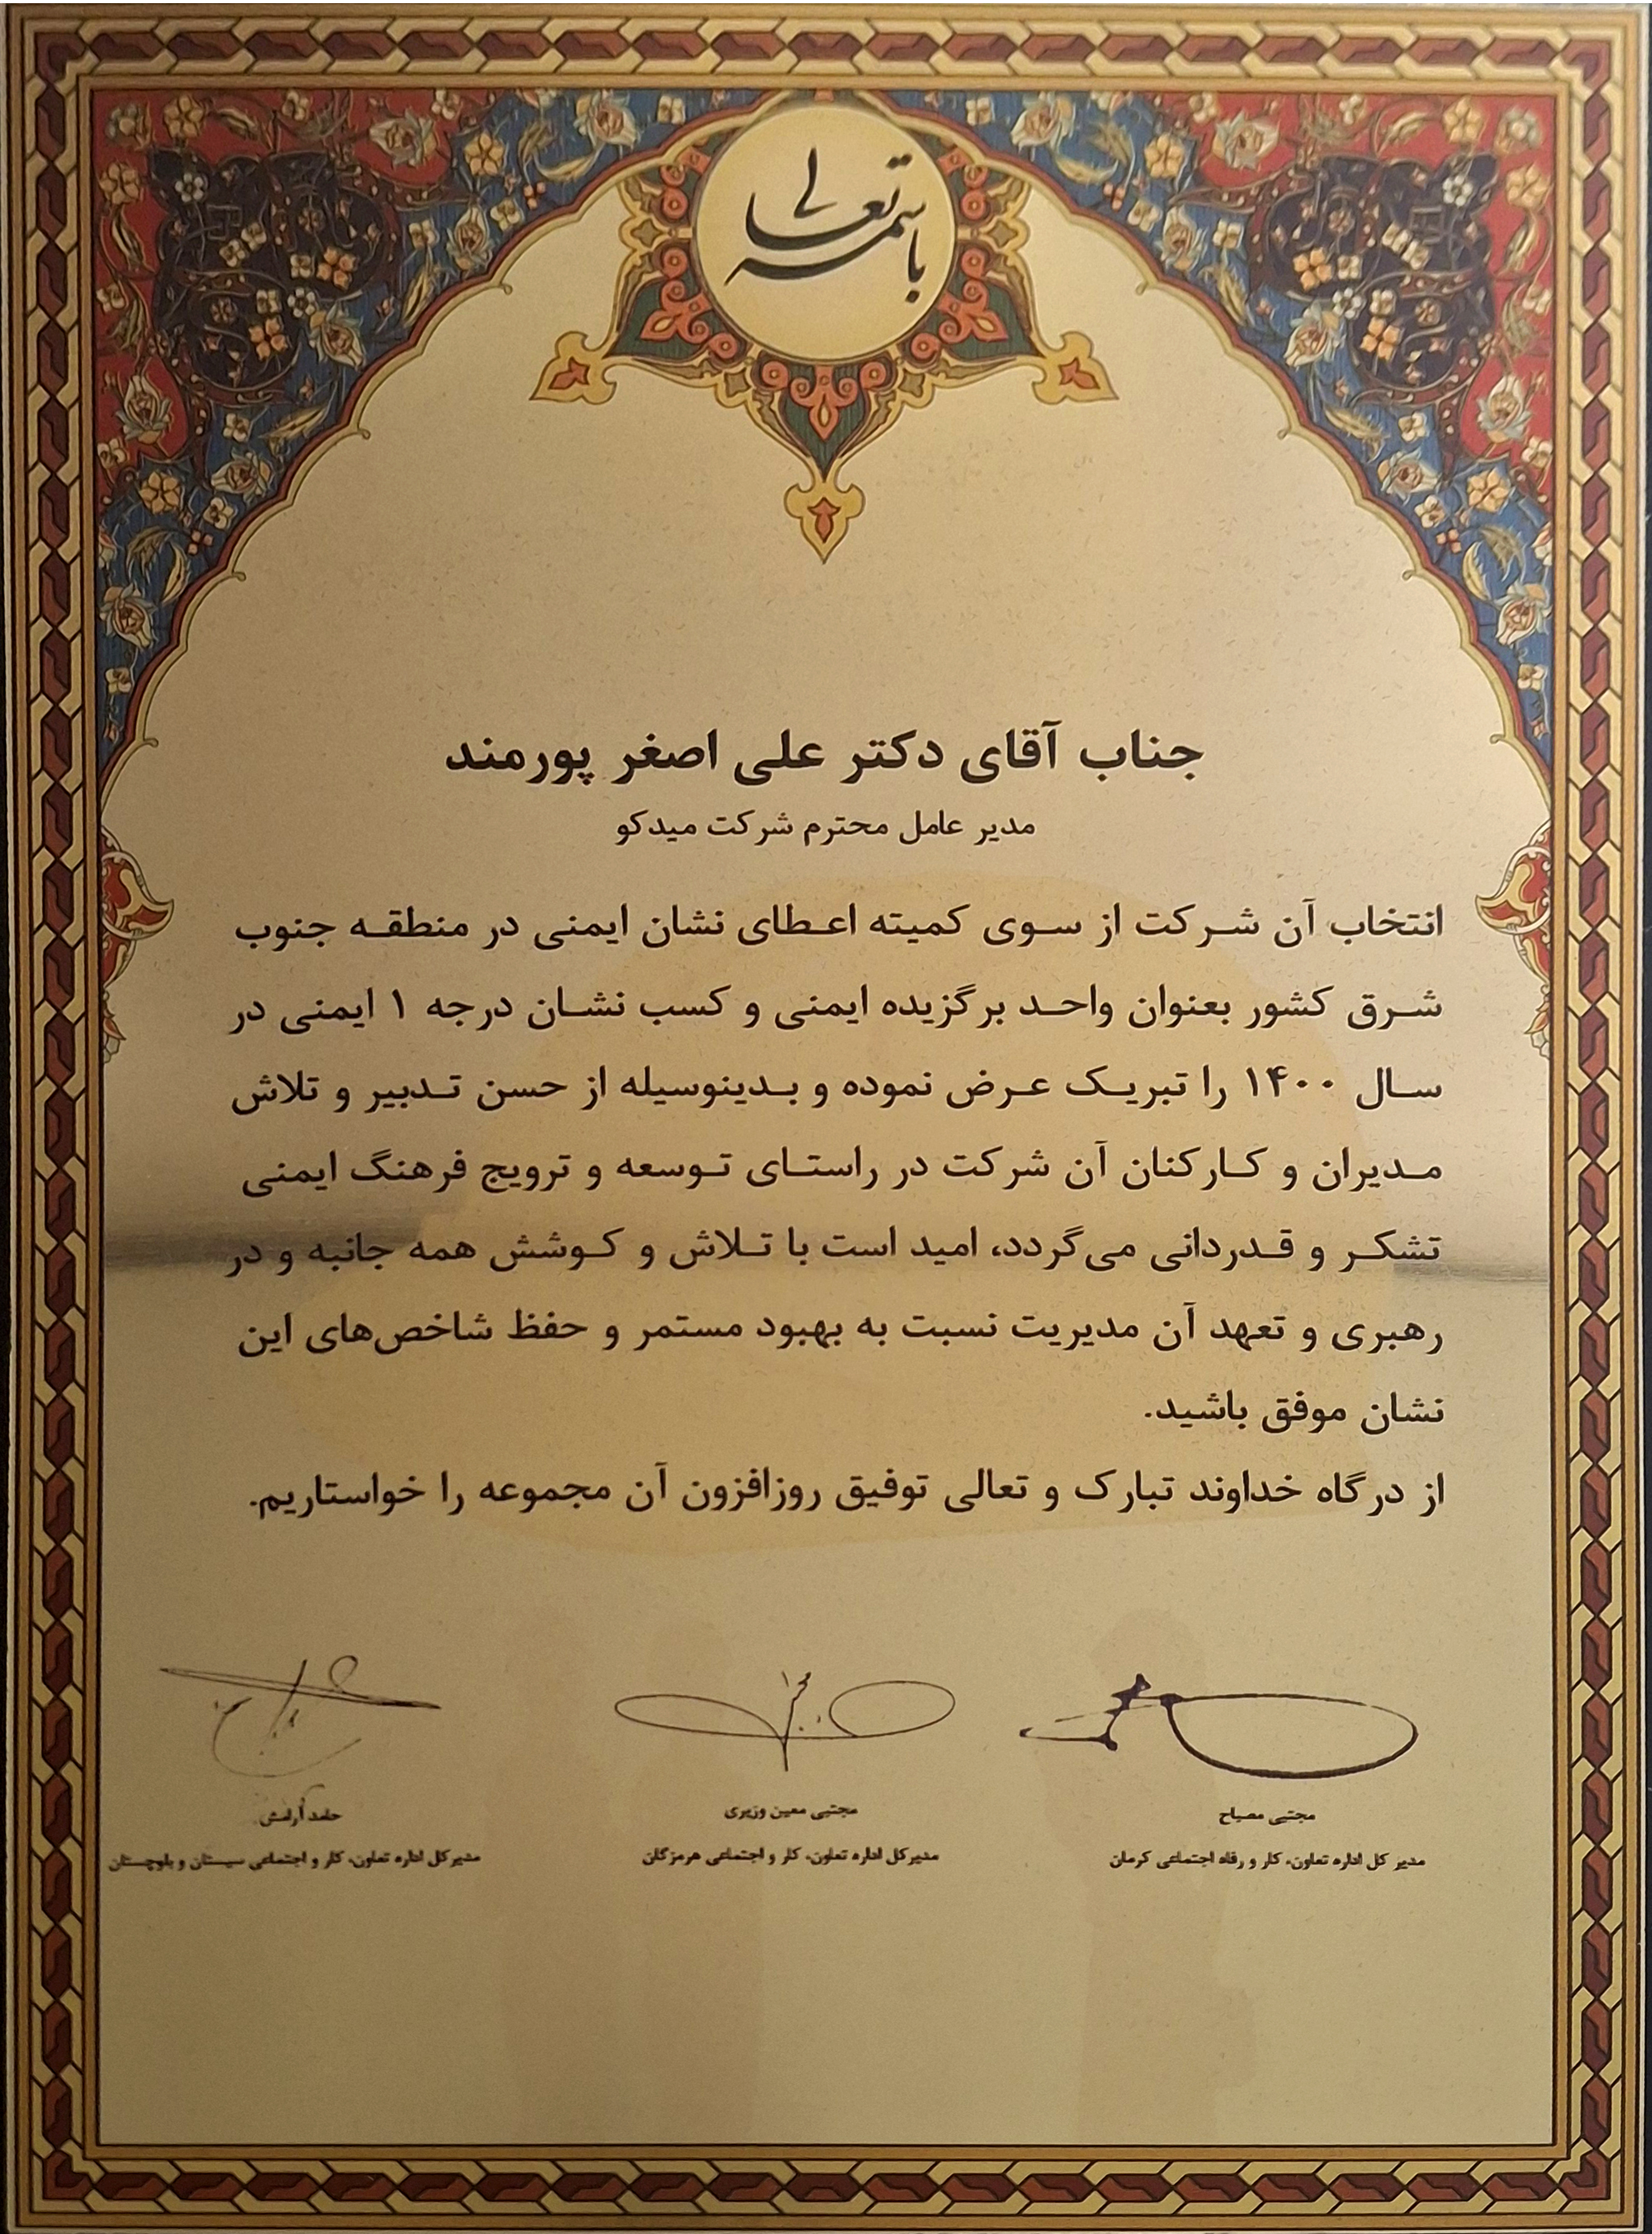 باسمه تعالی
جناب آقای دکتر علی اصغر پورمند
مدیر عامل محترم شرکت میدکو
انتخاب آن شرکت از سوی کمیته اعطای نشان ایمنی در منطقه جنوب
شرق کشور بعنوان واحد برگزیده ایمنی و کسب نشان درجه ۱ ایمنی در
سال ۱۴۰۰ را تبریک عرض نموده و بدینوسیله از حسن تدبیر و تلاش
مدیران و کارکنان آن شرکت در راستای توسعه و ترویج فرهنگ ایمنی
تشکر و قدردانی می‌گردد، امید است با تلاش و کوشش همه جانبه و در
رهبری و تعهد آن مدیریت نسبت به بهبود مستمر و حفظ شاخص‌های این
نشان موفق باشید.
از درگاه خداوند تبارک و تعالی توفیق روزافزون آن مجموعه را خواستاریم.
مجتبی مصباح
مدیر کل اداره تعاون، کار و رفاه اجتماعی کرمان
مجتبی معین وزیری
مدیرکل اداره تعاون، کار و اجتماعی هرمزگان
حامد آرامش
مدیرکل اداره تعاون، کار و اجتماعی سیستان و بلوچستان